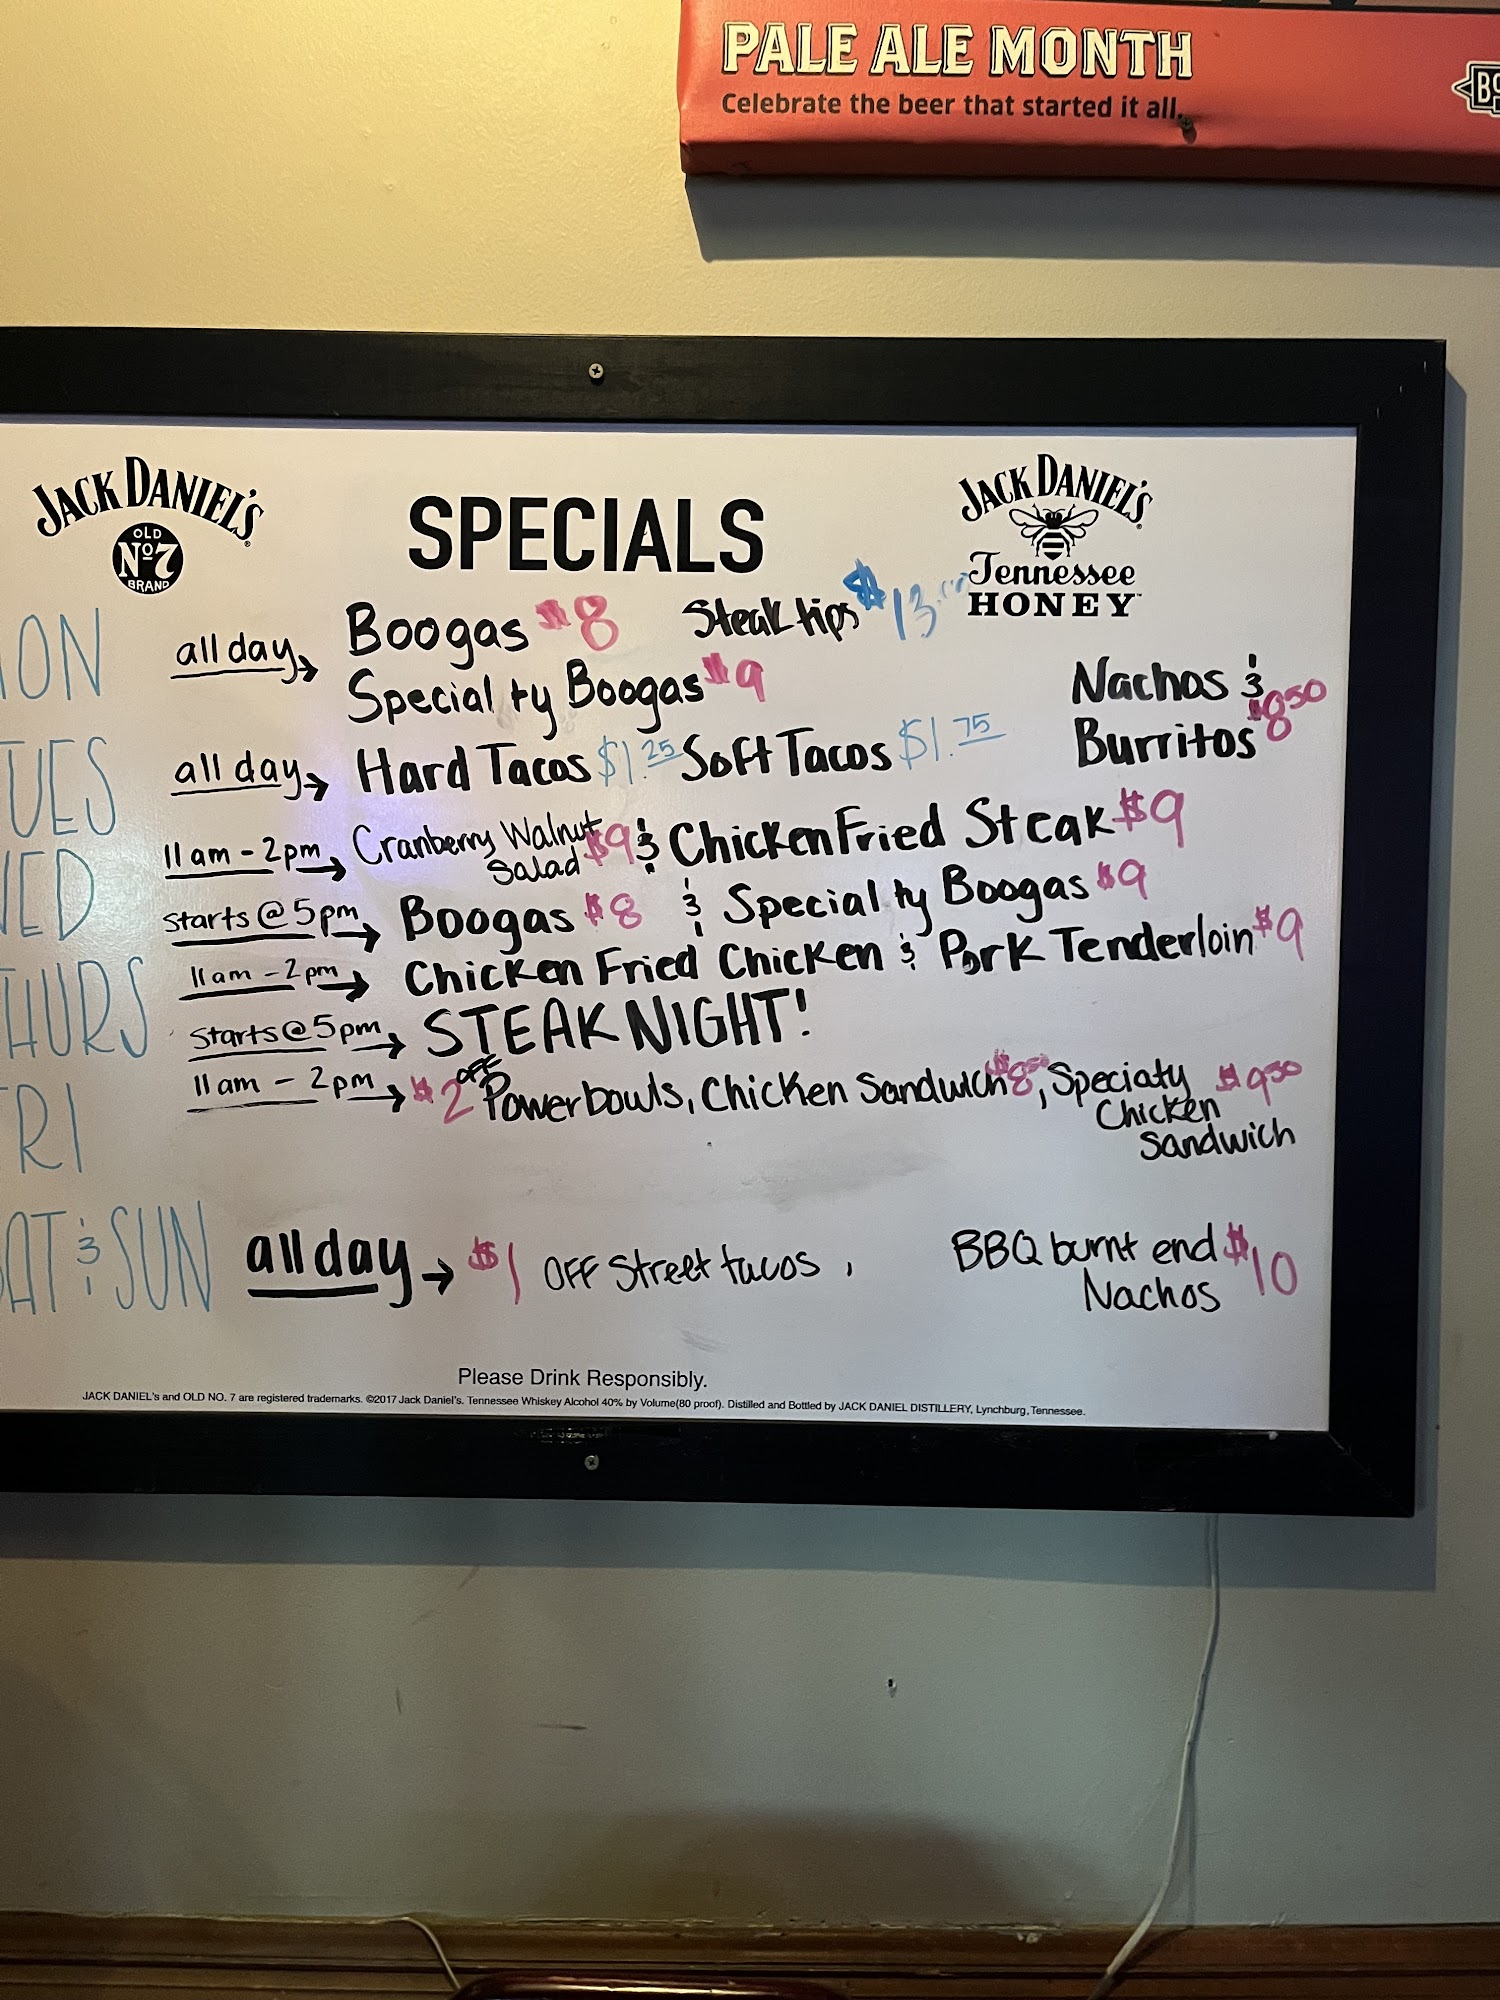 PALE ALE MONTH
Celebrate the beer that started it all.
JACK DANIEL'S
OLD
No 7
BRAND
SPECIALS
JACK DANIEL'S
Tennessee
HONEY
ON all day → Boogas $8 Steak tips $13
Specialty Boogas $9
TUES all day → Hard Tacos $1.25 Soft Tacos $1.75 Nachos &
Burritos $8.50
ED 11am - 2pm → Cranberry Walnut
Salad $9 & Chicken Fried Steak $9
Starts @ 5pm → Boogas $8 & Specialty Boogas $9
THURS 11am - 2pm → Chicken Fried Chicken & Pork Tenderloin $9
Starts @ 5pm → STEAK NIGHT!
RI 11am - 2pm → $2 OFF Powerbowls, Chicken Sandwich $8.50, Speciaty
Chicken
Sandwich $9.50
AT & SUN all day → $1 OFF Street tacos, BBQ burnt end
Nachos $10
Please Drink Responsibly.
JACK DANIEL's and OLD NO. 7 are registered trademarks. ©2017 Jack Daniel's. Tennessee Whiskey Alcohol 40% by Volume(80 proof). Distilled and Bottled by JACK DANIEL DISTILLERY, Lynchburg, Tennessee.